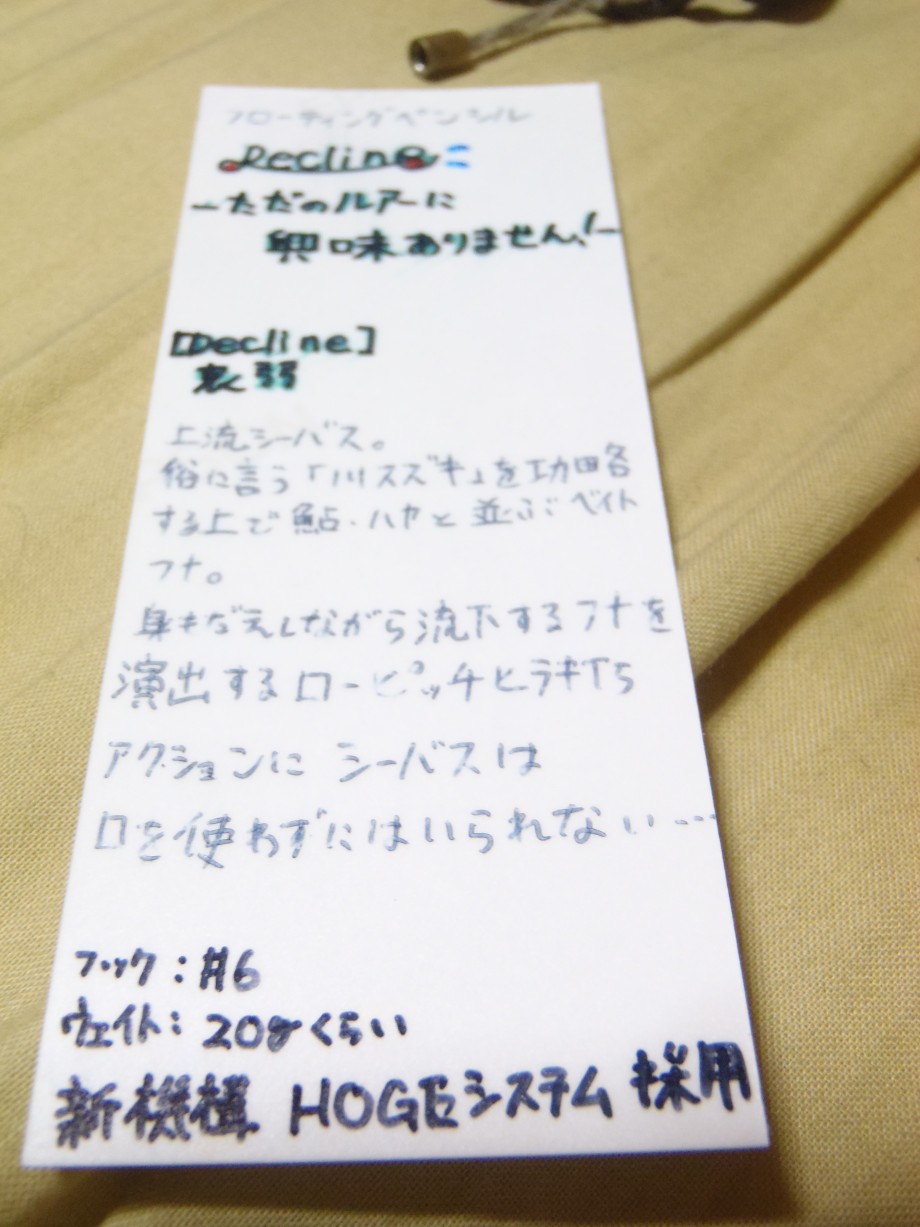 フローティングペンシル
Decline
-ただのルアーに
興味ありません!-
[Decline]
衰弱
上流シーバス。
俗に言う「川スズキ」を功略
する上で鮎・ハヤと並ぶベイト
フナ。
身もだえしながら流下するフナを
演出するローピッチヒラキTS
アクションに シーバスは
口を使わずにはいられない…
フック:#6
ウェイト:20gくらい
新機構 HOGEシステム 採用